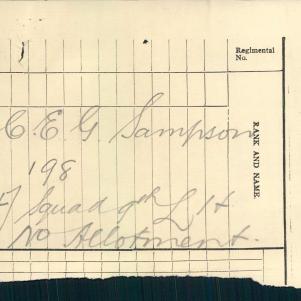 Regimental
No.
RANK AND NAME
C. E. G. Sampson
198
Squad 9th L H
No Allotment.